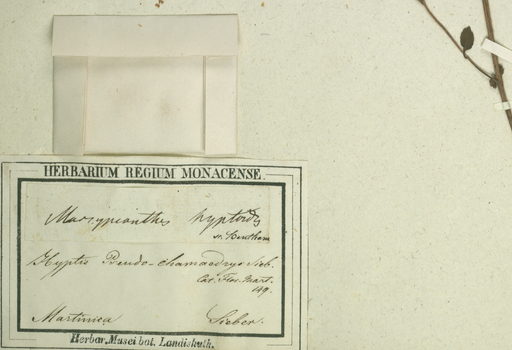 HERBARIUM REGIUM MONACENSE.
Marsypianthes hyptoides
m. Bentham
Hyptis Pseudo-chamaedrys Sieb.
Cat. Flor. Mart.
149.
Martinica Sieber.
Herbar. Musei bot. Landishuth.